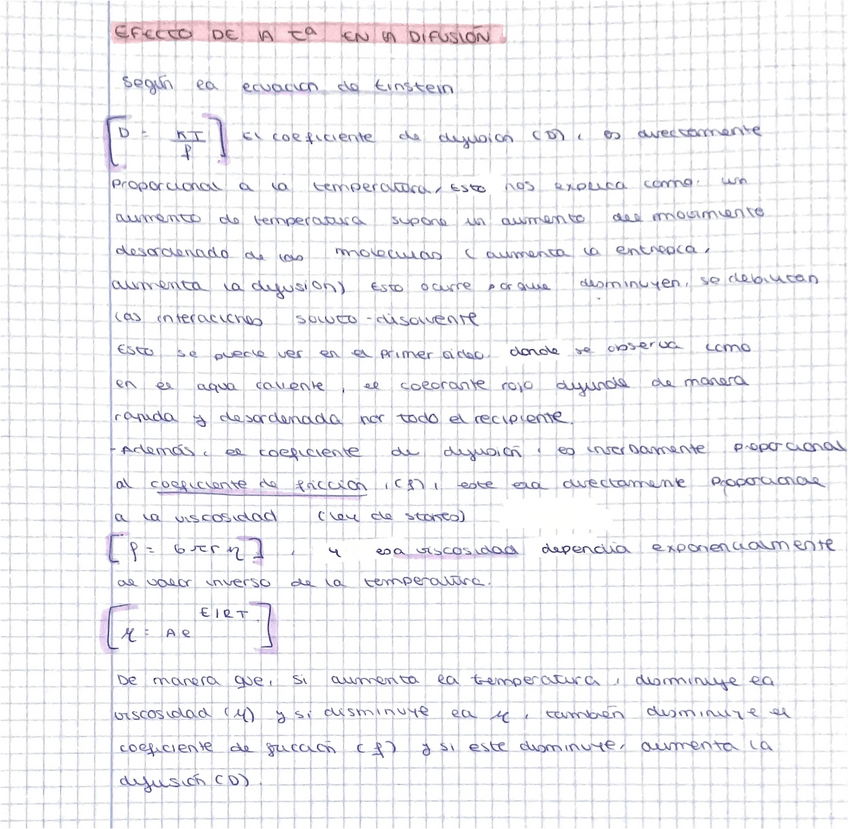 EFECTO DE LA Tª EN LA DIFUSIÓN
Según la ecuación de Einstein
[D = KT/f] el coeficiente de difusión (D), es directamente
proporcional a la temperatura, Esto nos explica como un
aumento de temperatura supone un aumento del movimiento
desordenado de las moleculas (aumenta la entropía,
aumenta la difusión) Esto ocurre porque disminuyen, se debilitan
las interaciones soluto-disolvente
Esto se puede ver en el primer video, donde se observa como
en el agua caliente, el colorante rojo difunde de manera
rápida y desordenada por todo el recipiente.
-Además, el coeficiente de difusión, es inversamente proporcional
al coeficiente de fricción, (f), este era directamente proporcional
a la viscosidad (ley de stokes)
[f = 6πrη], y esa viscosidad dependía exponencialmente
al valor inverso de la temperatura.
[η = Ae^E/RT]
De manera que, si aumenta la temperatura, disminuye la
viscosidad (η) y si disminuye la η, también disminuye el
coeficiente de fricción (f) y si este disminuye, aumenta la
difusión (D).